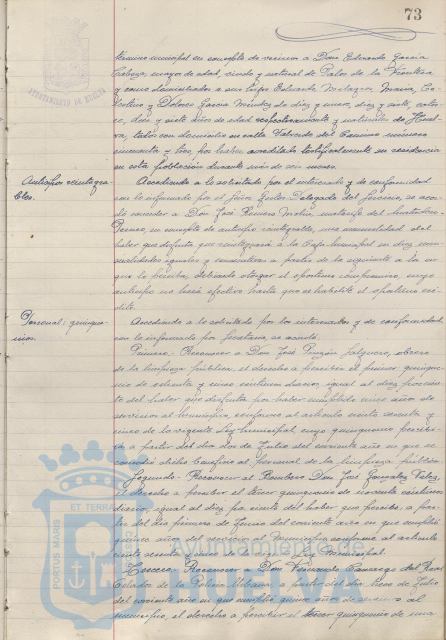 73
AYUNTAMIENTO DE HUELVA
término municipal en concepto de vecino a Don Eduardo García
mayor de edad, viudo y natural de Palos de la Frontera
y como a sus hijos Eduardo, Milagros, María,
y Dolores García Méndez de diez y nueve, diez y siete,
doce y siete años de edad respectivamente y naturales de Huelva,
todos con domicilio en calle Cabezo del número
cincuenta y tres, por haber acreditado su residencia
en esta población durante más de seis meses.
Anticipos reintegrables.
Accediendo a lo solicitado por el interesado y de conformidad
con lo informado por el Señor Delegado del Servicio, se acordó
conceder a Don José Romero
en concepto de anticipo reintegrable, una mensualidad del
haber que disfruta, que reintegrará a la Caja Municipal en diez mensualidades
iguales y consecutivas a partir de la siguiente a la en
que lo perciba, debiendo otorgar el oportuno compromiso, cuyo
anticipo no hará efectivo hasta que se habilite el oportuno crédito.
Personal: quinquenios.
Accediendo a lo solicitado por los interesados y de conformidad
con lo informado por Secretaría, se acordó:
Primero.- Reconocer a Don José Salguero, obrero
de la limpieza pública, el derecho a percibir el primer quinquenio
de ochenta y cinco céntimos diarios, igual al diez por ciento
del haber que disfruta por haber cumplido cinco años de
servicios al Municipio, conforme al artículo ciento sesenta y
cinco de la vigente Ley Municipal, cuyo quinquenio percibirá
a partir del dos de Julio del corriente año en que se
dicho al personal de la limpieza pública
Segundo.- Reconocer al Bombero Don José González Vélez,
el derecho a percibir el tercer quinquenio de céntimos
diarios, igual al diez por ciento del haber que percibe, a partir
del día primero de Junio del corriente año en que cumplió
quince años de servicios al Municipio conforme al artículo
ciento sesenta y cinco de la Ley Municipal.
Tercero.- Reconocer a Don Camargo del Real
Celador de la Policía Urbana, a partir del día trece de Julio
del corriente año en que cumplió quince años de servicios al
municipio, el derecho a percibir el tercer quinquenio de una
PORTUS MARIS
ET TERRAE
Ayuntamiento de